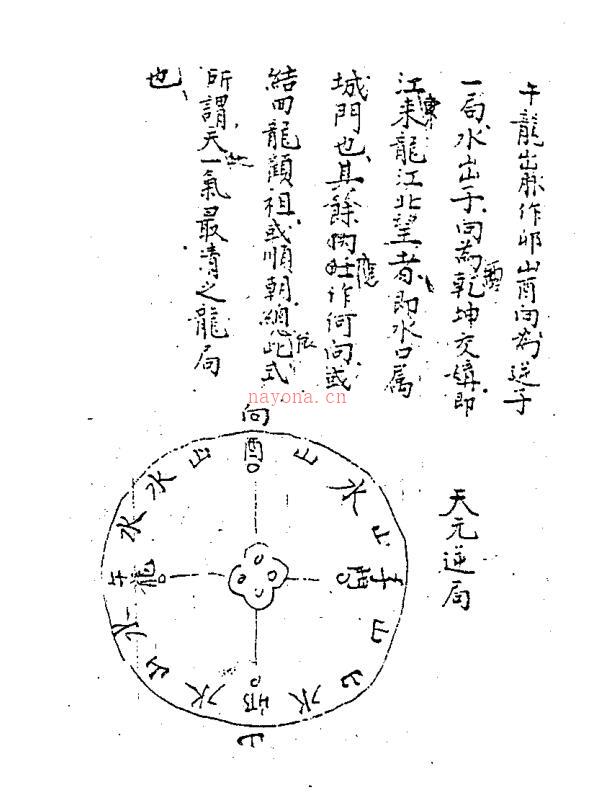 午龍出脉作卯山酉向為逆子
一局水出子向為乾坤交媾即
江東來龍江北望者即水口屬
城門也其餘應作何向或
結回龍顧祖或順朝總依此式
所謂天一氣最清之龍局
也
天元逆局
nayona.cn
向
酉
山
水
山
子
山
山
水
卯
水
山
水
午
龍
水
水
山
山